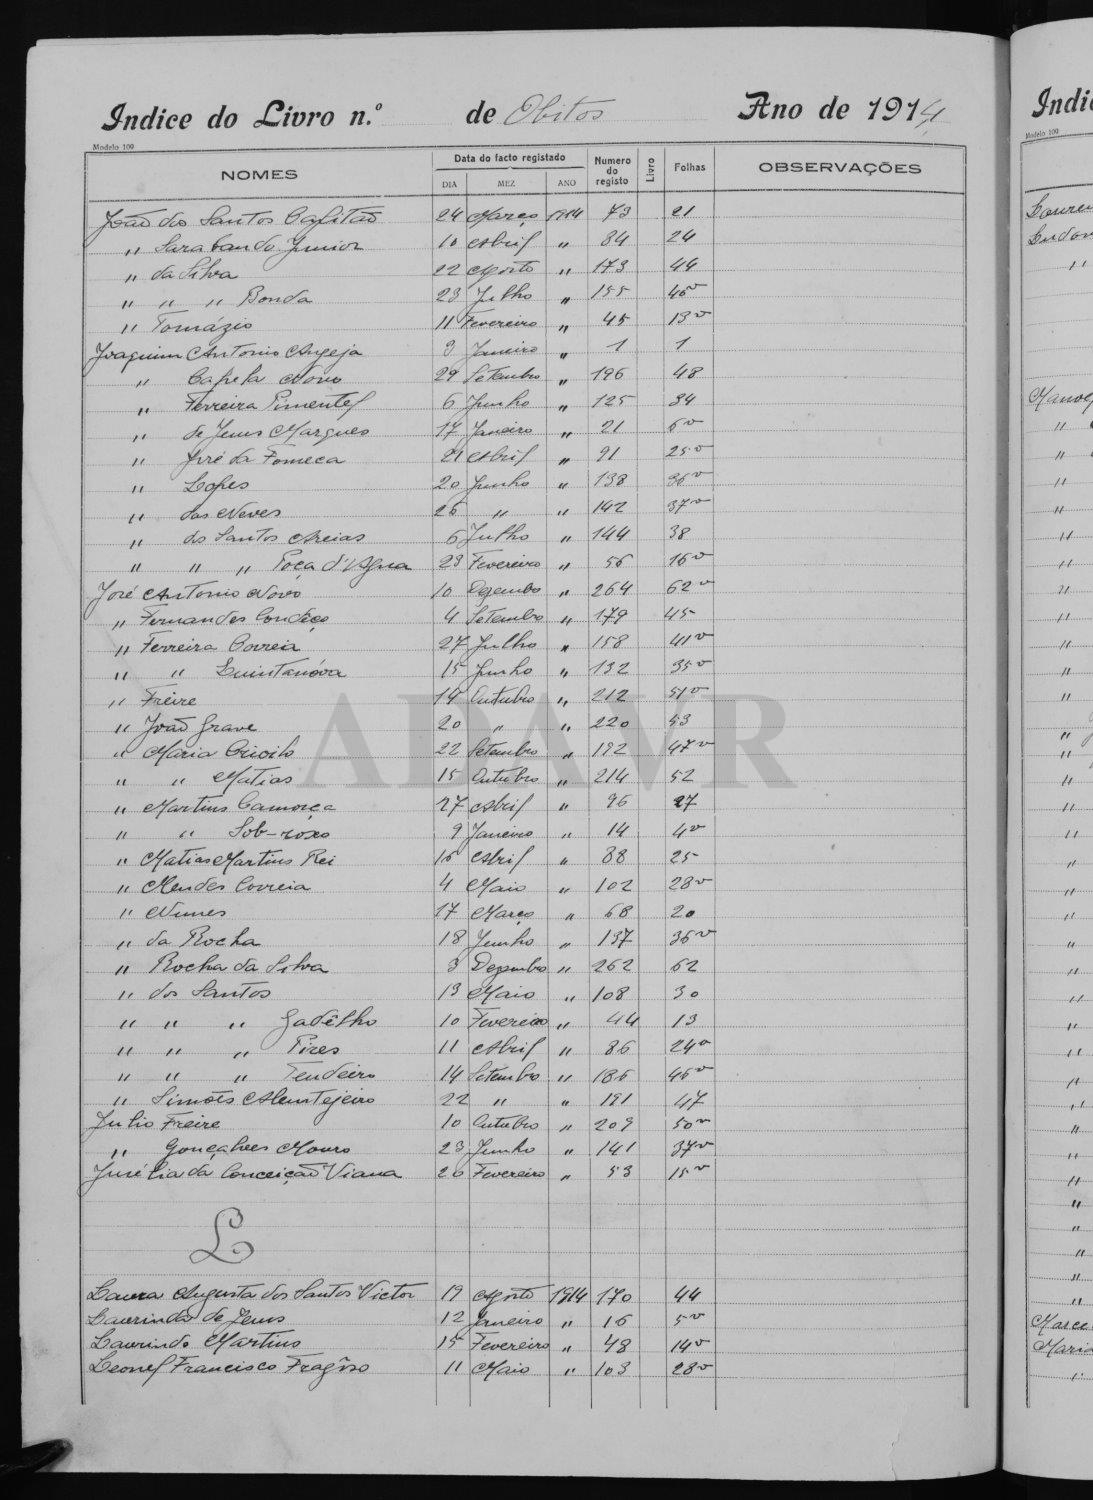 Indice do Livro n.º de Obitos Ano de 1914
Modelo 109
NOMES Data do facto registado Numero do registo Livro Folhas OBSERVAÇÕES
DIA MEZ ANO
João dos Santos Capitão 24 Março 1914 73 21
" Sarabando Junior 10 Abril " 84 24
" da Silva 22 Agosto " 173 44
" " " Bonda 23 Julho " 155 40v
" Tomázio 11 Fevereiro " 45 13v
Joaquim Antonio Angeja 3 Janeiro " 1 1
" Capela Novo 29 Setembro " 196 48
" Ferreira Pimentel 6 Junho " 125 34
" de Jesus Marques 17 Janeiro " 21 6v
" José da Fonseca 21 Abril " 91 25v
" Lopes 20 Junho " 138 36v
" das Neves 26 " " 142 37v
" dos Santos Areias 6 Julho " 144 38
" " " Poça d'Agua 23 Fevereiro " 56 16v
José Antonio Novo 10 Dezembro " 264 62v
" Fernandes Condeço 4 Setembro " 179 45
" Ferreira Correia 27 Julho " 158 41v
" " Quintanóva 15 Junho " 132 35v
" Freire 14 Outubro " 212 51v
" João Grave 20 " " 220 53
" Maria Crivilo 22 Setembro " 192 47v
" " Matias 15 Outubro " 214 52
" Martins Camorça 27 Abril " 96 27
" " Sob-roxo 9 Janeiro " 14 4v
" Matias Martins Rei 16 Abril " 88 25
" Mendes Correia 4 Maio " 102 28v
" Nunes 17 Março " 68 20
" da Rocha 18 Junho " 137 36v
" Rocha da Silva 3 Dezembro " 262 62
" dos Santos 19 Maio " 108 30
" " " Gadelho 10 Fevereiro " 44 13
" " " Pires 11 Abril " 86 24v
" " " Tendeiro 14 Setembro " 186 46v
" Simões Alentejeiro 22 " " 191 47
Julio Freire 10 Outubro " 209 50v
" Gonçalves Mouro 23 Junho " 141 37v
Jusélia da Conceição Viana 20 Fevereiro " 53 15v
L
Laura Augusta dos Santos Victor 19 Agosto 1914 170 44
Laurinda de Jesus 12 Janeiro " 16 5v
Laurindo Martins 15 Fevereiro " 48 14v
Leonel Francisco Fragôso 11 Maio " 103 28v
ADAVR